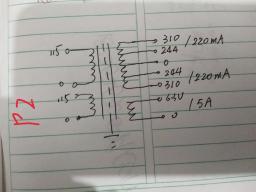 310 / 220mA
115
244
0
0
244 / 220mA
115
310
6.3V
/ 5A
0
0
P2